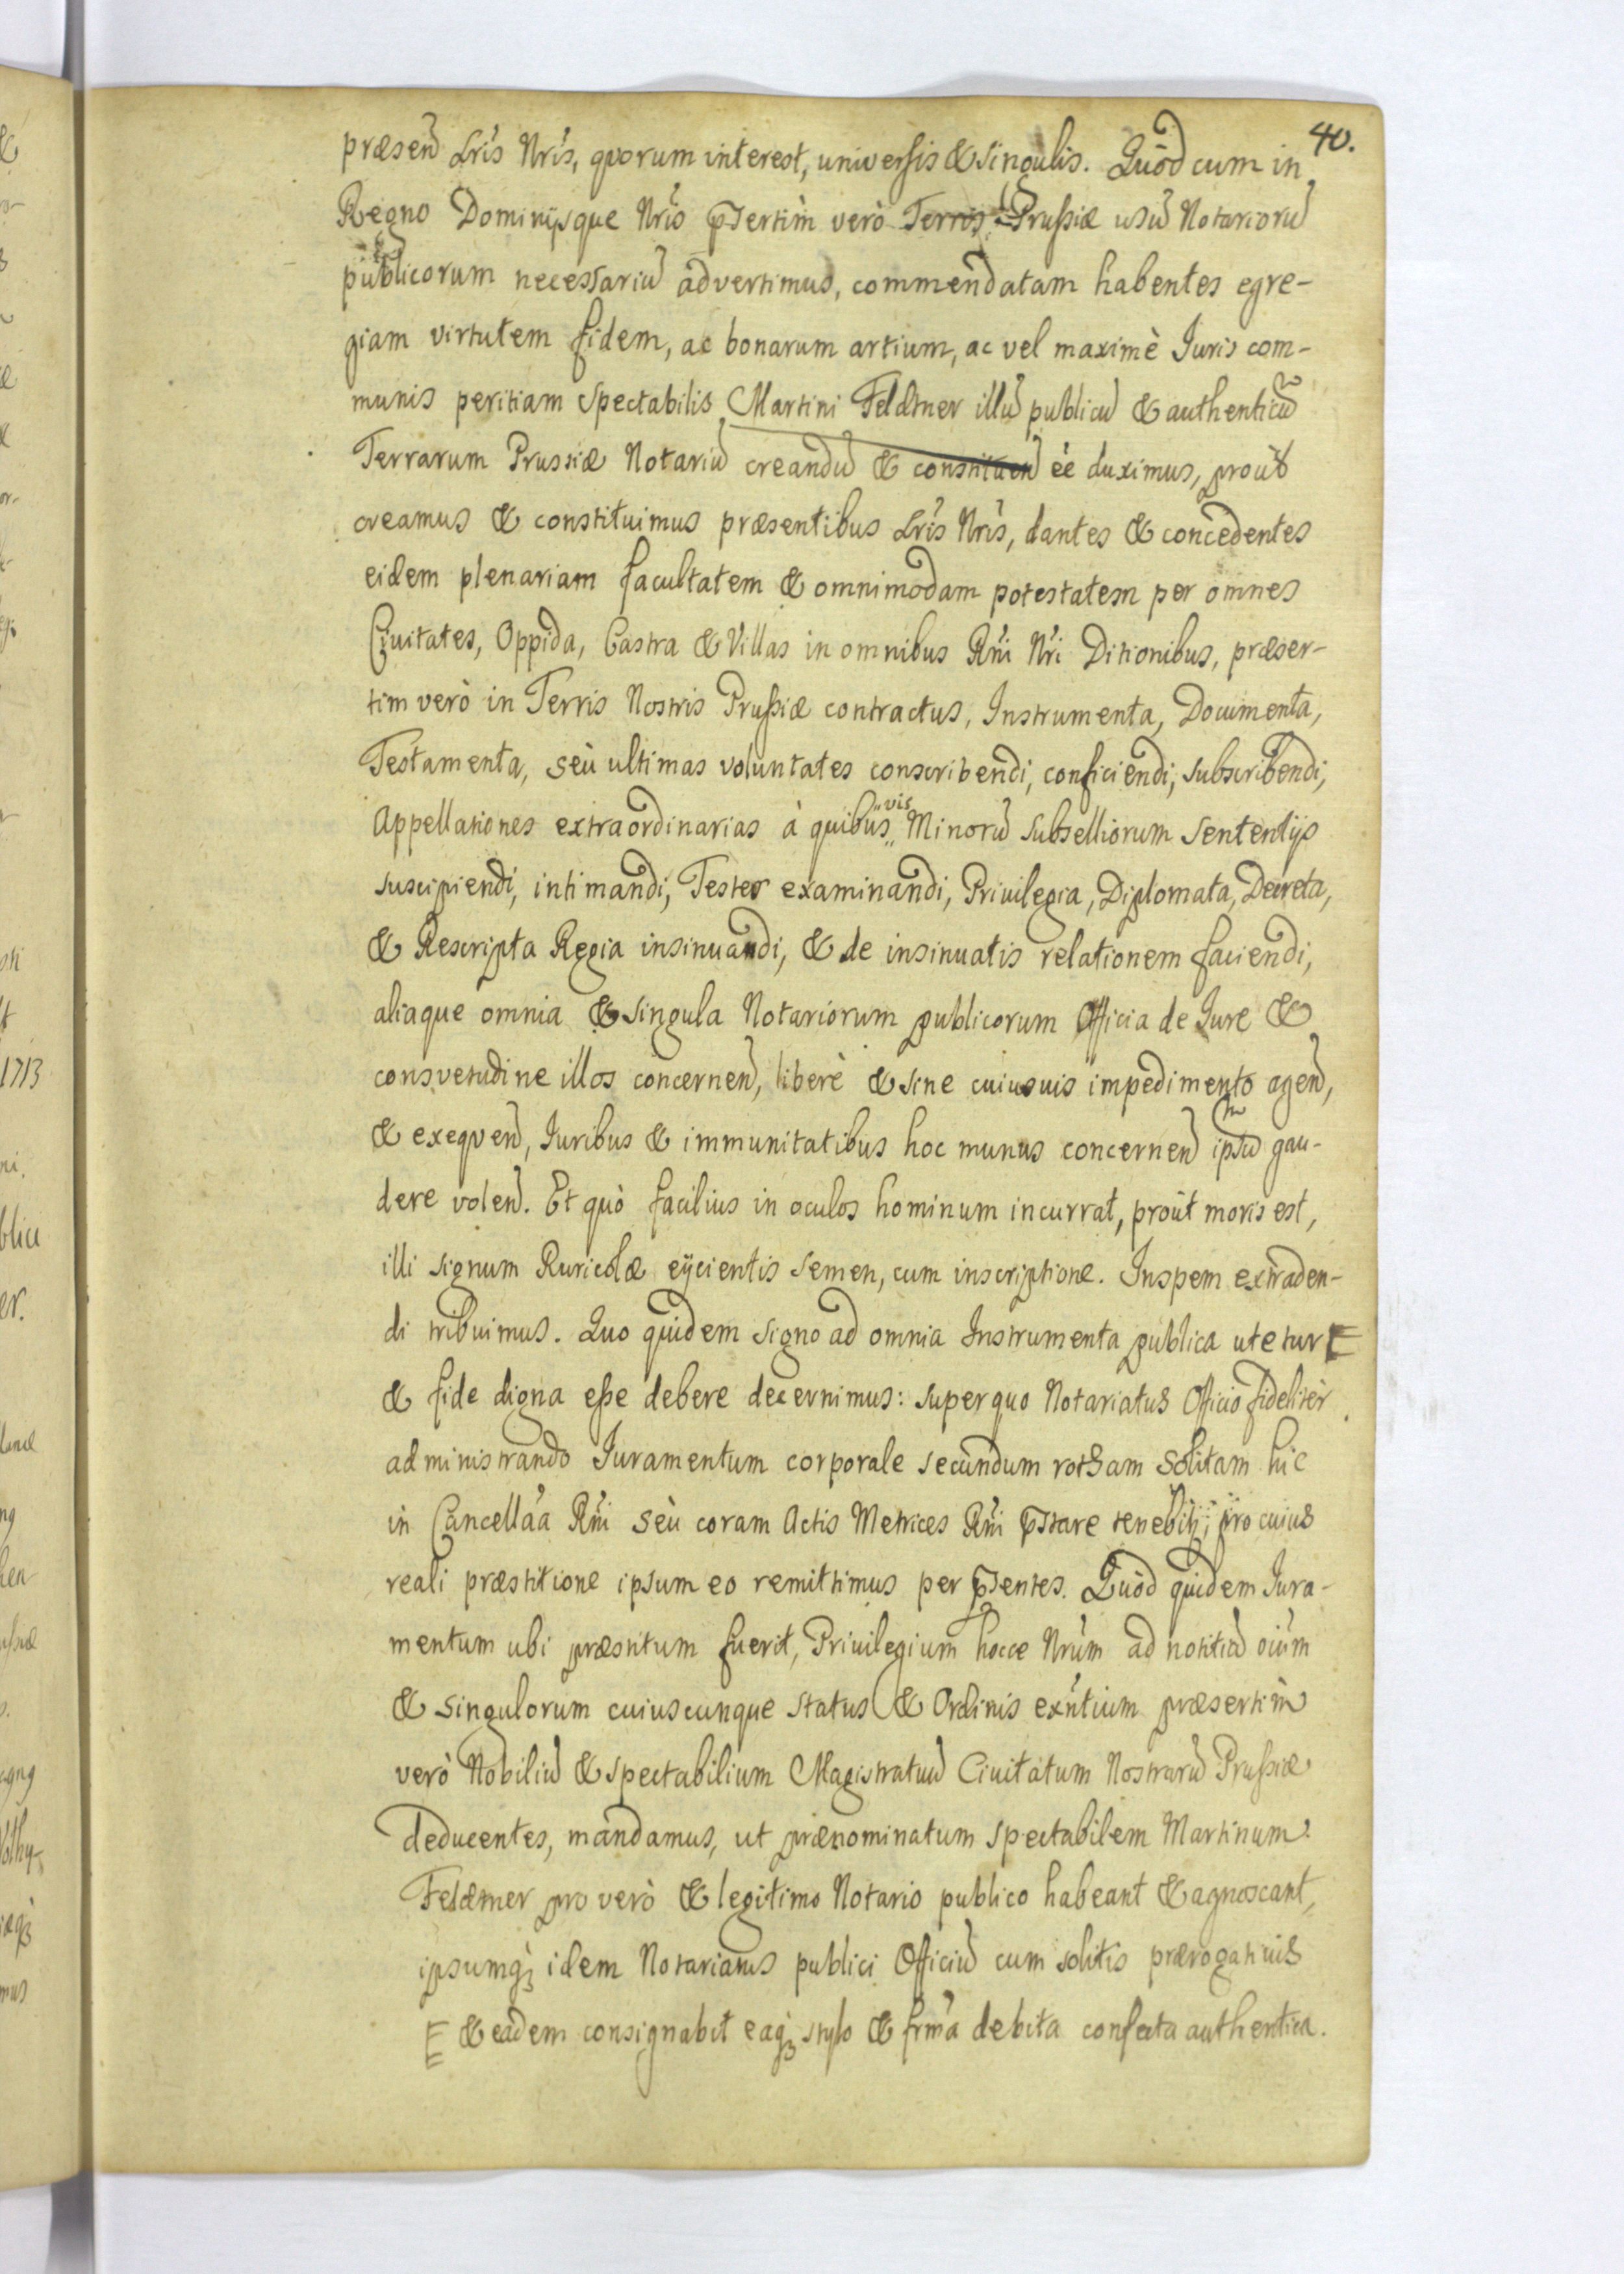 40.
præsen̄ Lrı̃s Nrı̃s, quorum interest, universis & singulis. Quod cum in
Regno Dominijsque Nrı̃s p̄sertim verò Terris Prussiæ usū Notariorū
publicorum necessariū advertimus, commendatam habentes egre-
giam virtutem fidem, ac bonarum artium, ac vel maximè Juris com-
munis peritiam spectabilis Martini Feldtner illū publicū & authenticū
Terrarum Prussiæ Notariū creandū & constituen̄ ee̓ duximus, prout
creamus & constituimus præsentibus Lrı̃s Nrı̃s, dantes & concedentes
eidem plenariam facultatem & omnimodam potestatem per omnes
Civitates, Oppida, Castra & Villas in omnibus Rñi Nrı̃ Ditionibus, præser-
tim verò in Terris Nostris Prussiæ contractus, Instrumenta, Documenta,
Testamenta, seù ultimas voluntates conscribendi, conficiendi, subscribendi,
Appellationes extraordinarias à quibusvis Minorū subselliorum sententijs
suscipiendi, intimandi, Testes examinandi, Privilegia, Diplomata, Decreta,
& Rescripta Regia insinuandi, & de insinuatis relationem faciendi,
aliaque omnia & singula Notariorum publicorum Officia de Jure &
consvetudine illos concernen̄, liberè & sine cuiusuis impedimento agen̄,
& exequen̄, Juribus & immunitatibus hoc munus concernen̄ ipsū gau-
dere volen̄. Et quò facilius in oculos hominum incurrat, prout moris est,
illi signum Ruricolæ eijcientis semen, cum inscriptione. In spem extraden-
di tribuimus. Quo quidem signo ad omnia Instrumenta publica utetur E
& fide digna esse debere decernimus: super quo Notariatus Officio fidelitèr
administrando Juramentum corporale secundum rotham solitam hic
in Cancellãa Rñi seù coram Actis Metrices Rñi p̄stare tenebit̃; pro cuius
reali præstitione ipsum eo remittimus per p̄sentes. Quod quidem Jura-
mentum ubi præstitum fuerit, Priuilegium hocce Nrũm ad notitiā oĩum
& singulorum cuiuscunque status & Ordinis exñtium præsertim
verò Nobiliū & spectabilium Magistratuū Ciuitatum Nostrarū Prussiæ
deducentes, mandamus, ut prænominatum spectabilem Martinum
Feldtner pro verò & legitimo Notario publico habeant & agnoscant,
ipsumq̃ idem Notariatus publici Officiū cum solitis prærogatiuis
E & eadem consignabit eaq̃ stylo & frm̃a debita confecta authentica.